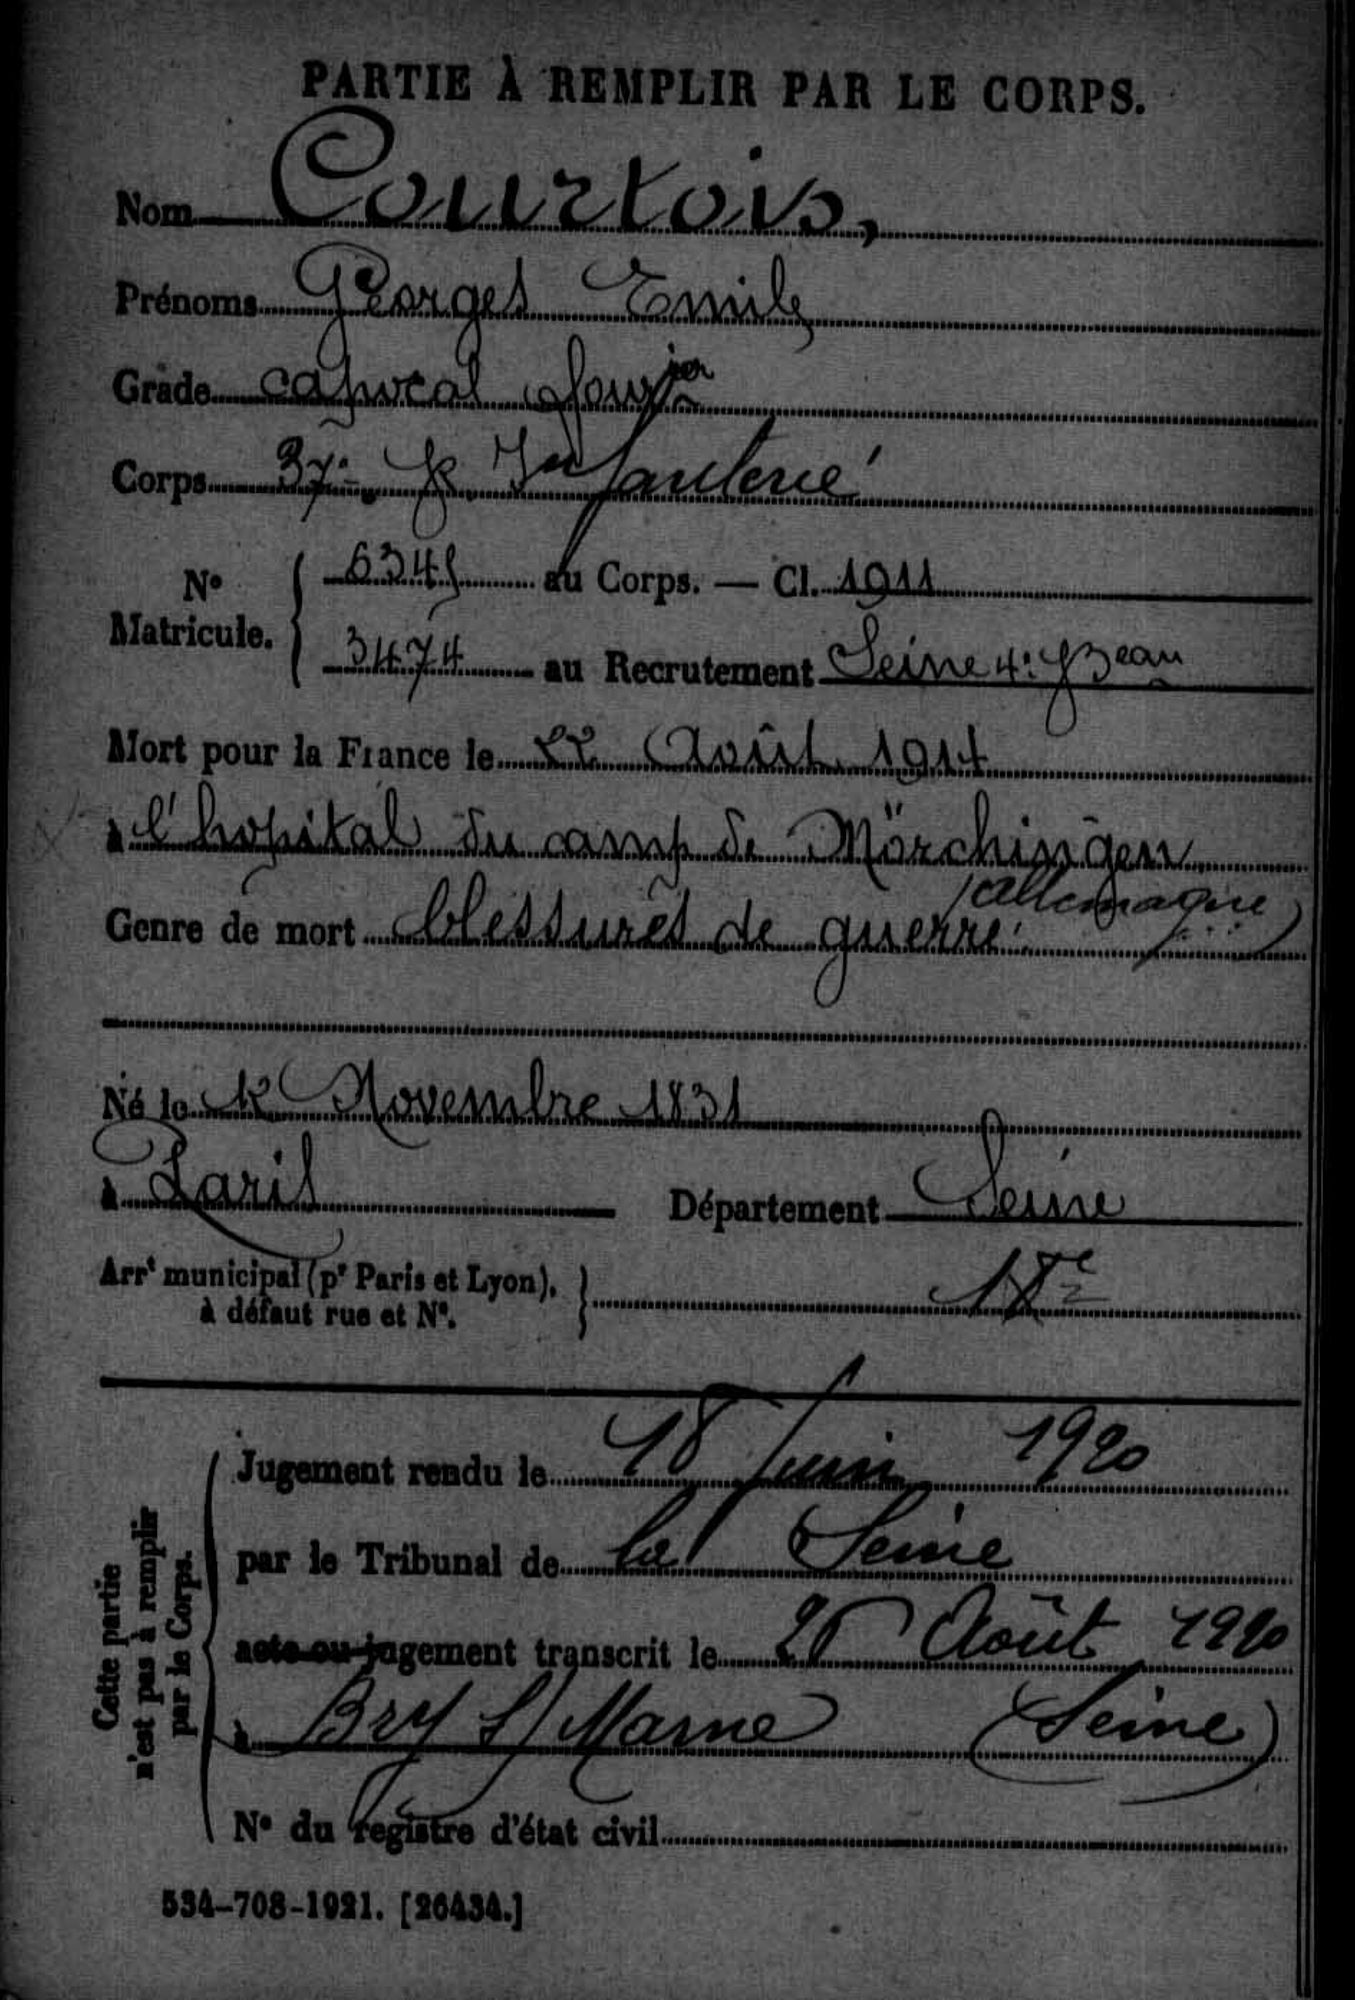 PARTIE À REMPLIR PAR LE CORPS.
Nom Courtois,
Prénoms Georges Emile
Grade caporal fourier
Corps 37e R. Infanterie
No Matricule. 6345 au Corps. — Cl. 1911
3474 au Recrutement Seine 4e Bean
Mort pour la France le 22 Août 1914
à l'hopital du camp de Mörchingen
(allemagne)
Genre de mort blessures de guerre
Né le 12 Novembre 1831
à Paris Département Seine
Arrt municipal (pr Paris et Lyon), à défaut rue et No.
Cette partie n'est pas à remplir par le Corps.
Jugement rendu le 18 Juin 1920
par le Tribunal de la Seine
acte ou jugement transcrit le Août 1920
à Bry s/ Marne (Seine)
No du registre d'état civil
534-708-1921. [26434.]